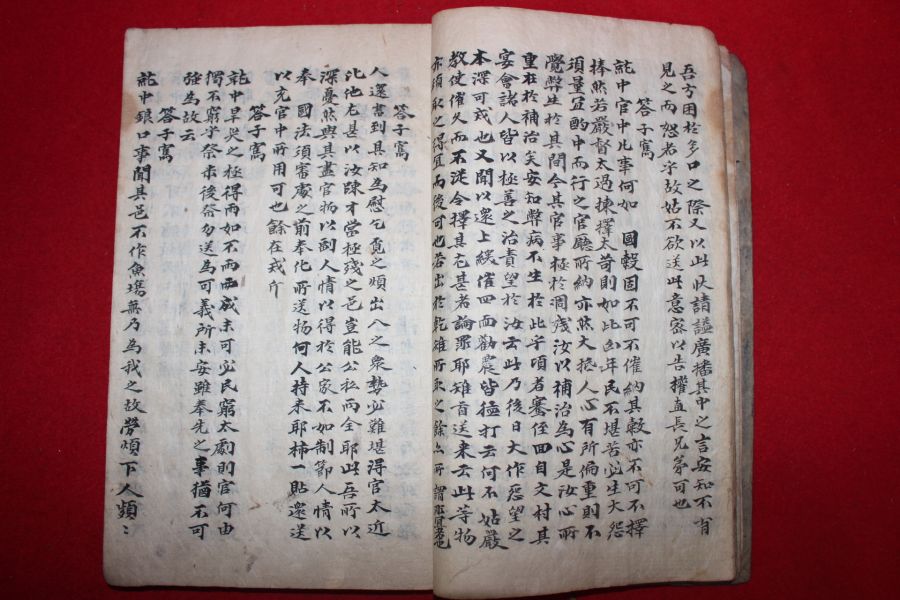 吾方困於多口之際又以此狀請謚廣播其中之言安知不有
見之而怒者乎故姑不欲送此意密以告權直長兄弟可也
答子寯
訛中官中凡事何如 國穀固不可不催納其穀亦不可不擇
捧然若嚴督太過揀擇太苛則如此凶年民不堪苦必生大怨
須量宜酌中而行之官廳所納亦然大抵人心有所偏重則不
覺弊生於其間今其官事極於凋殘汝以補治為心是汝心所
重在於補治矣安知弊病不生於此乎頃者騫侄回自文村其
宴會諸人皆以極善之治責望於汝云此乃後日大作怨望之
本深可戒也又聞以還上緩催四面勸農皆猛打云何不姑嚴
教使催久而不從今擇其尤甚者論罪耶雉首送來云此等物
亦須取之得宜而後可也若出於乾雉所取之餘
人還書到具知為慰乞覓之煩出入之衆勢必難堪得官太近
此他尤甚以汝踈才當極殘之邑豈能公私兩全耶此吾所以
深憂然與其盡官物以副人情以得於公家不如制節人情以
奉 國法須審處之前奉化所送物何人持來耶柿一貼還送
以充官中所用可也餘在戎介
答子寯
訛中旱災之極得雨如不雨兩歲未可必民窮太劇則官何由
獨不窮乎祭需後當勿送為可義所未安雖奉先之事猶不可
強為故云
答子寯
訛中銀口事聞其邑不作魚墈無乃為我之故勞煩下人類〻